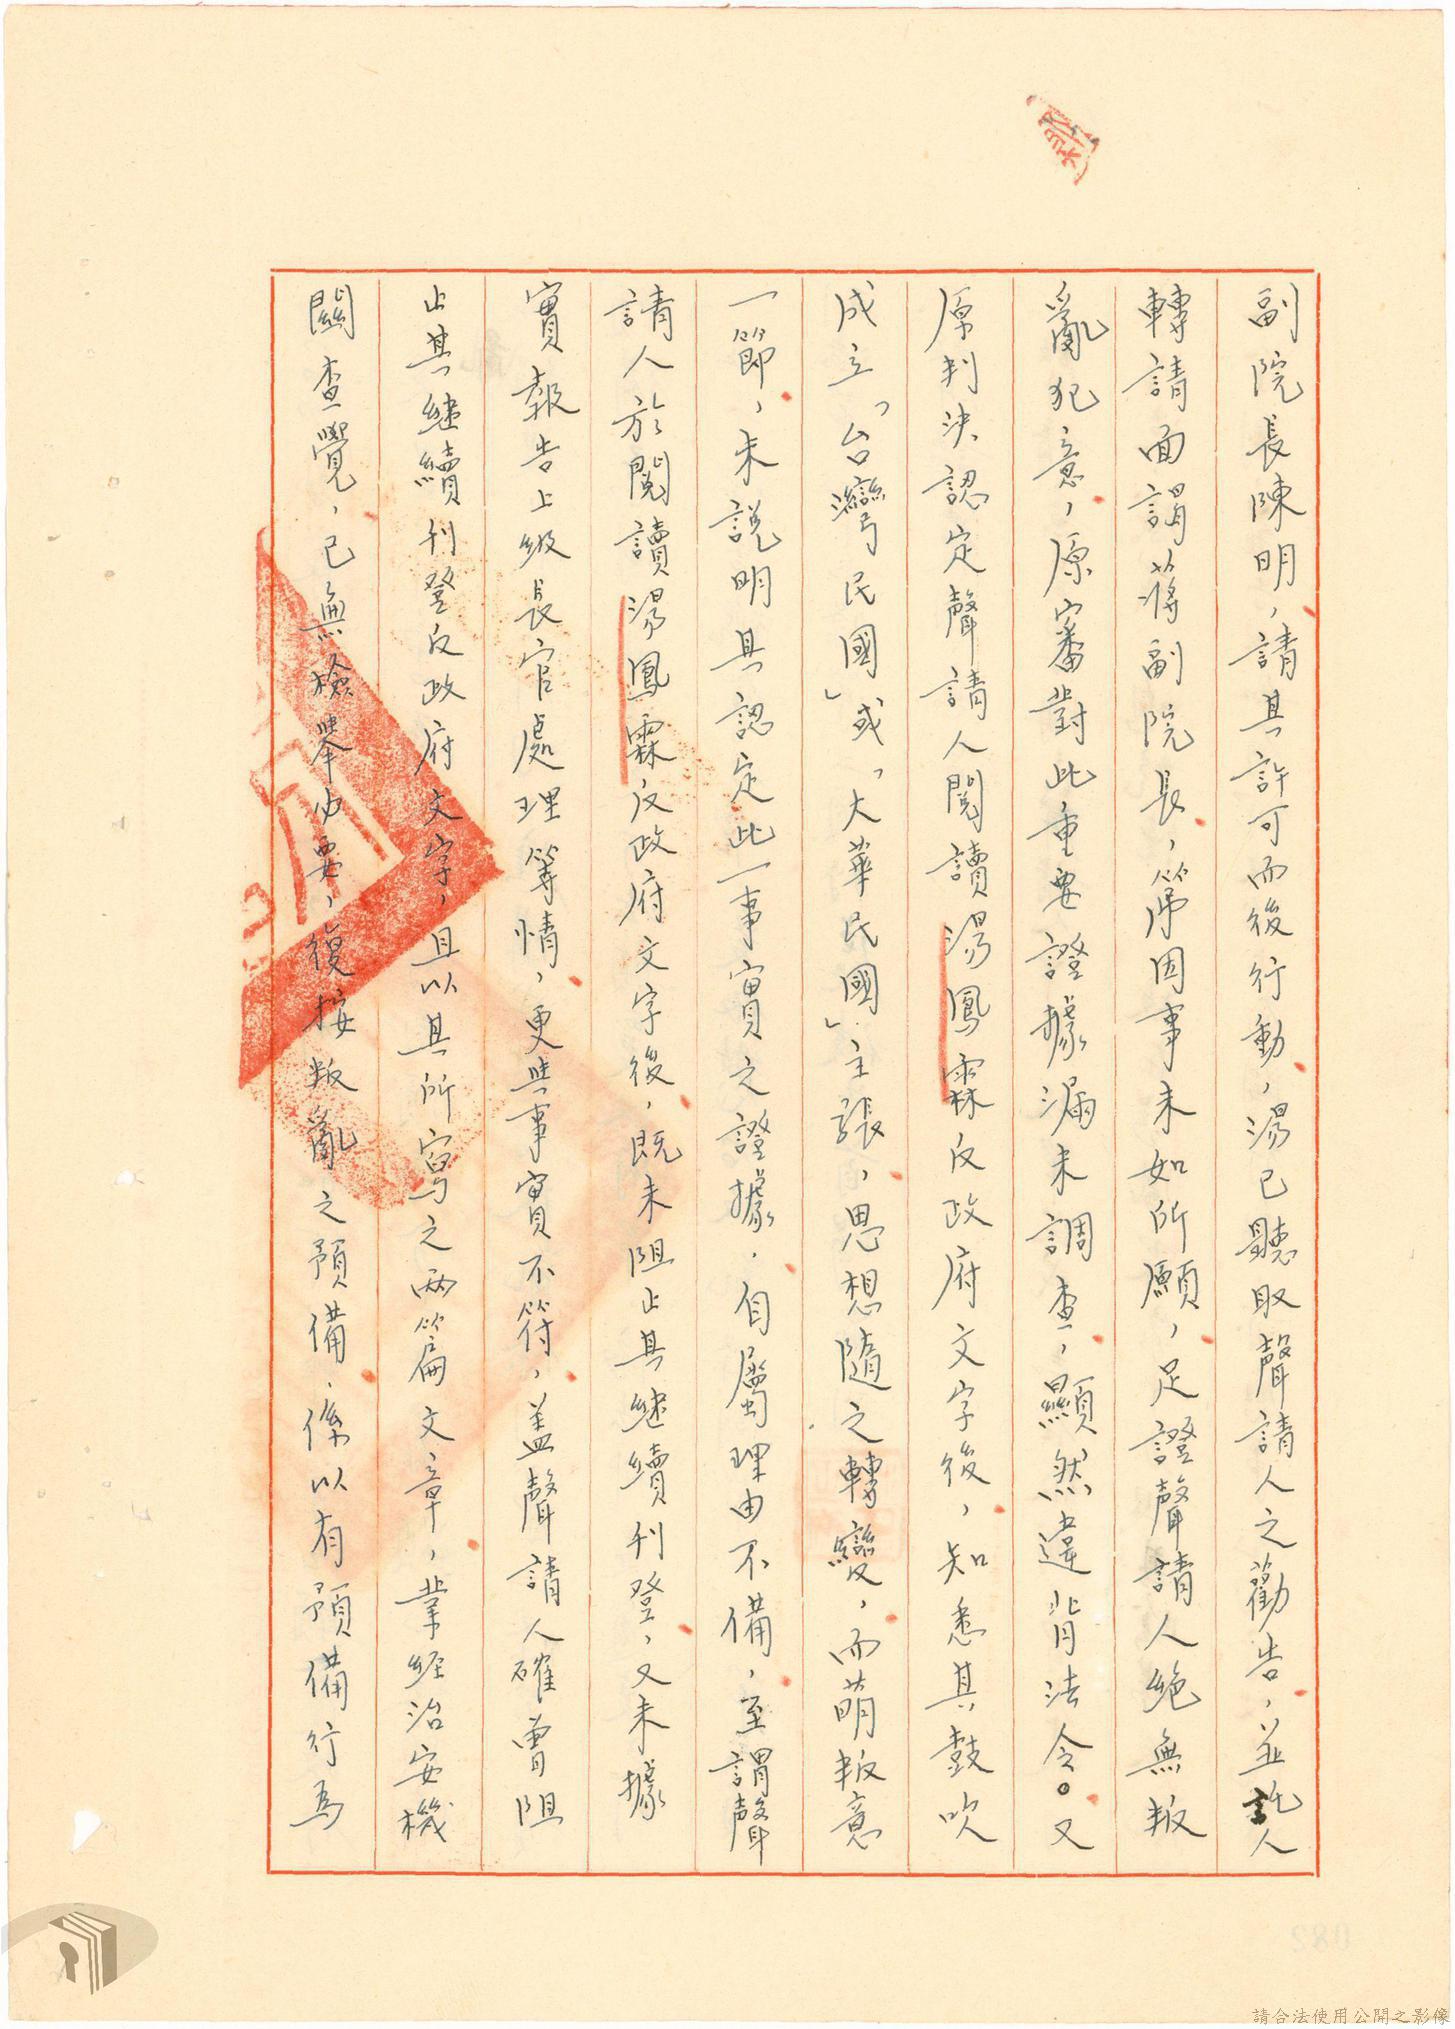 副院長陳明，請其許可而後行動，湯已聽取聲請人之勸告，並託人
轉請面謁蔣副院長，第因事未如所願，足證聲請人絕無叛
亂犯意，原審對此重要證據漏未調查，顯然違背法令。又
原判決認定聲請人閱讀湯鳳霖反政府文字後，知悉其鼓吹
成立「台灣民國」或「大華民國」主張，思想隨之轉變，而萌叛意
一節，未說明其認定此一事實之證據，自屬理由不備，至謂聲
請人於閱讀湯鳳霖反政府文字後，既未阻止其継續刊登，又未據
實報告上級長官處理等情，更與事實不符，盖聲請人確曾阻
止其継續刊登反政府文字，且以其所寫之兩篇文章，業經治安機
關查覺，已無檢舉必要，復按叛亂之預備，係以有預備行為
請合法使用公開之影像